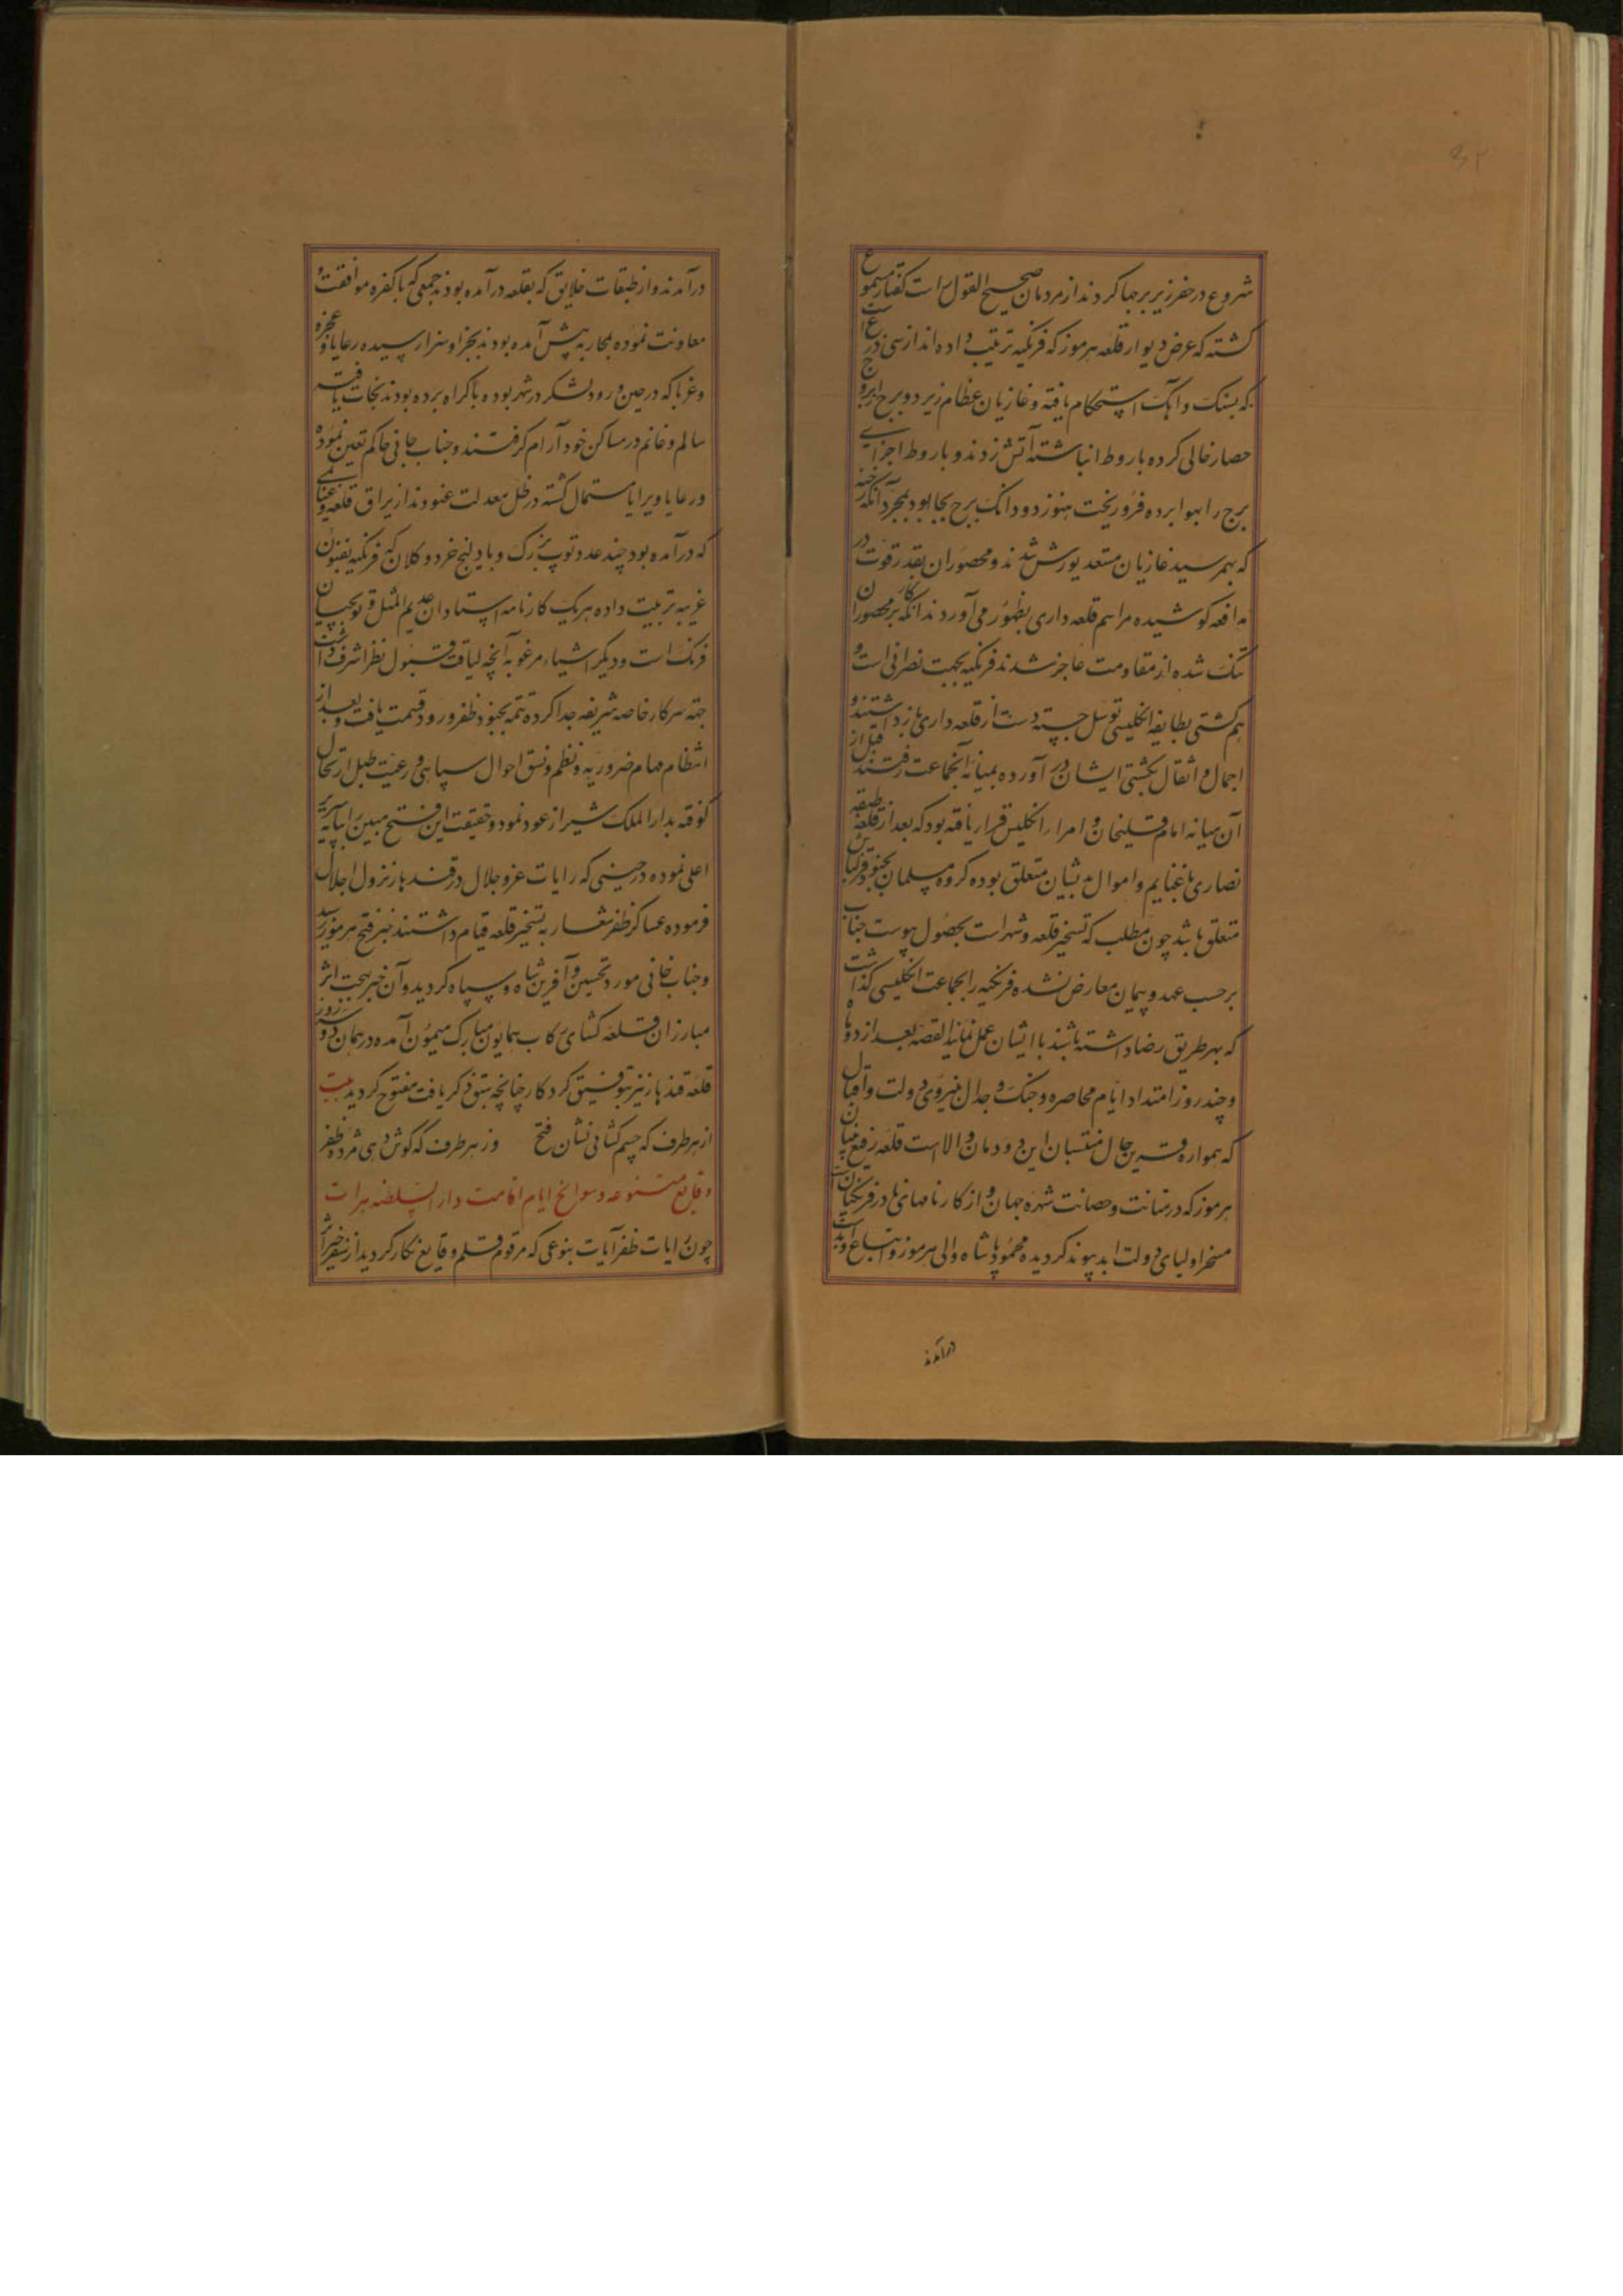 شروع در حفر زیر برجها کردند از مردمان صحیح القول راست گفتار مسموع
گشته که عرض دیوار قلعه هرموز که فرنگیه ترتیب داده اند از سی ذرع است
که بسنگ و آهک استحکام یافته و غازیان عظام زیر دو برج از بروج
حصار خالی کرده باروط انباشته آتش زدند و باروط اجزای
برج را بهوا برده فرو ریخت هنوز دو دانگ برج بجا بود بمجرد آنکه رخنه
که بهمرسید غازیان مستعد یورش شدند و محصوران بقدر قوت در
مدافعه کوشیده مراسم قلعه داری بظهور می آوردند آنگه کار بر محصوران
تنگ شده از مقاومت عاجز شدند فرنگیه بجهت نصرانی است و
هم کشتی بطایفه انگلیسی توسل جسته دست از قلعه داری باز داشتند و
احمال و اثقال بکشتی ایشان در آورده بمیانه آنجماعت رفتند قبل از
آن میانه امام قلیخان و امرا را انگلیس قرار یافته بود که بعد از قلعه طبقه
نصاری با غنایم و اموال بدیشان متعلق بوده گروه مسلمان بجنود قزلباش
متعلق باشد چون مطلب که تسخیر قلعه و شهر است بحصول پیوست جناب
برحسب عهد و پیمان معارض نشده فرنگیه را بجماعت انگلیسی گذاشت
که بهر طریق رضا داشته باشند با ایشان عمل نمایند القصه بعد از دو ماه
و چند روز امتداد ایام محاصره و جنگ و جدال بنیروی دولت و اقبال
که همواره قرین حال منتسبان این دودمان والاست قلعه رفیع بنیان
هرموز که در متانت و حصانت شهره جهان و از کارنامهای نادر فرنگیان است
مسخر اولیای دولت ابد پیوند گردیده محمود پاشاه والی هرموز و اتباع او بدست
درآمدند
درآمدند و از طبقات خلایق که بقلعه در آمده بودند جمعی که با کفره موافقت و
معاونت نموده بمحاربه پیش آمده بودند بجزا و سزا رسیده رعایا و عجزه
و غربا که در حین ورود لشکر در شهر بوده باکراه برده بودند نجات یافته
سالم و غانم در مساکن خود آرام گرفتند و جناب خانی حاکم تعین نموده
و رعایا و برایا مستمال گشته در ظل معدلت غنودند از یراق قلعه و غنایمی
که درآمده بود چند عدد توپ بزرگ و بادلیج خرد و کلان که فرنگیه بفنون
غریبه تربیت داده هریک کارنامه استادان عدیم المثل و توپچیان
فرنگ است و دیگر اشیاء مرغوبه آنچه لیاقت قبول نظر اشرف داشت
جهة سرکار خاصه شریفه جدا کرده تتمه بجنود ظفر ورود قسمت یافت و بعد از
انتظام مهام ضروریه و نظم و نسق احوال سپاهی و رعیت طبل ارتحال
کوفته بدارالملک شیراز عود نمود و حقیقت این فتح مبین را بپایه سریر
اعلی نموده در حینی که رایات عز و جلال در قندهار نزول اجلال
فرموده عساکر ظفر شعار به تسخیر قلعه قیام داشتند خبر فتح هرموز رسید
و جناب خانی مورد تحسین و آفرین شاه و سپاه گردید و آن خبر بهجت اثر
مبارزان قلعه کشای رکاب همایون مبارک میمون آمده در همان دو سه روز
قلعه قندهار نیز بتوفیق کردکار چنانچه سبق ذکر یافت مفتوح گردید بیت
از هر طرف که چشم کشائی نشان فتح وز هر طرف که گوش دهی مژده ظفر
وقایع متنوعه و سوانح ایام اقامت دار السلطنه هرات
چون رایات ظفر آیات بنوعی که مرقوم قلم وقایع نگار گردید از سفر خیر اثر